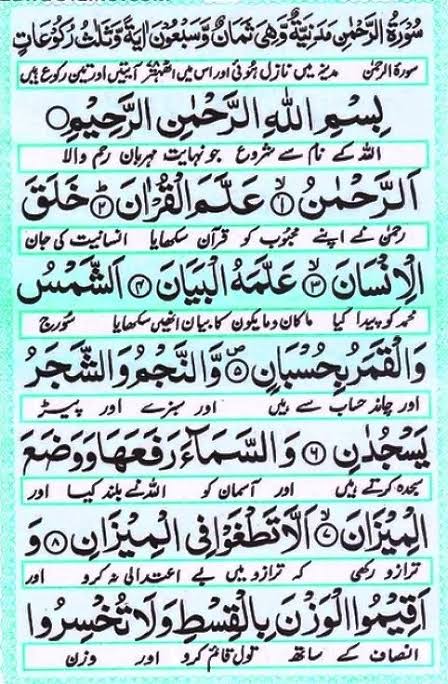 سُوْرَةُ الرَّحْمٰنِ مَدَنِيَّةٌ وَّهِىَ ثَمَانٌ وَّسَبْعُوْنَ اٰيَةً وَّثَلٰثُ رُكُوْعَاتٍ
سورۃ الرحمٰن مدینہ میں نازل ہوئی اور اس میں اٹھہتر آیتیں اور تین رکوع ہیں
بِسْمِ اللّٰهِ الرَّحْمٰنِ الرَّحِيْمِ
اللہ کے نام سے شروع جو نہایت مہربان رحم والا
اَلرَّحْمٰنُ ۙ۱ عَلَّمَ الْقُرْاٰنَ ؕ۲ خَلَقَ
رحمٰن نے اپنے محبوب کو قرآن سکھایا انسانیت کی جان
الْاِنْسَانَ ۙ۳ عَلَّمَهُ الْبَيَانَ ۴ اَلشَّمْسُ
محمد کو پیدا کیا ماکان ومایکون کا بیان انھیں سکھایا سورج
وَالْقَمَرُ بِحُسْبَانٍ ۪۵ وَّالنَّجْمُ وَالشَّجَرُ
اور چاند حساب سے ہیں اور سبزے اور پیڑ
يَسْجُدٰنِ ۶ وَالسَّمَآءَ رَفَعَهَا وَوَضَعَ
سجدہ کرتے ہیں اور آسمان کو اللہ نے بلند کیا اور
الْمِيْزَانَ ۙ۷ اَلَّا تَطْغَوْا فِى الْمِيْزَانِ ۸ وَ
ترازو رکھی کہ ترازو میں بے اعتدالی نہ کرو اور
اَقِيْمُوا الْوَزْنَ بِالْقِسْطِ وَلَا تُخْسِرُوا
انصاف کے ساتھ تول قائم کرو اور وزن